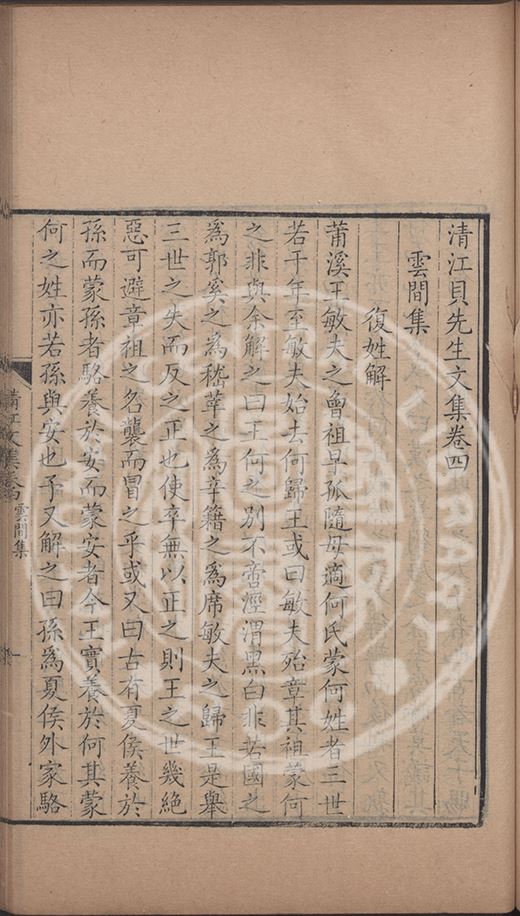 清江貝先生文集卷四
雲間集
復姓解
莆溪王敏夫之曾祖早孤隨母適何氏蒙何姓者三世
若干年至敏夫始去何歸王或曰敏夫殆章其祖蒙何
之非與余解之曰王何之別不啻涇渭黑白非若國之
為郭奚之為嵇莘之為辛籍之為席敏夫之歸王是舉
三世之失而反之正也使卒無以正之則王之世幾絶
惡可避章祖之名襲而冒之乎或又曰古有夏侯養於
孫而蒙孫者駱養於安而蒙安者今王實養於何其蒙
何之姓亦若孫與安也予又解之曰孫為夏侯外家駱
清江文集卷四 雲間集 一